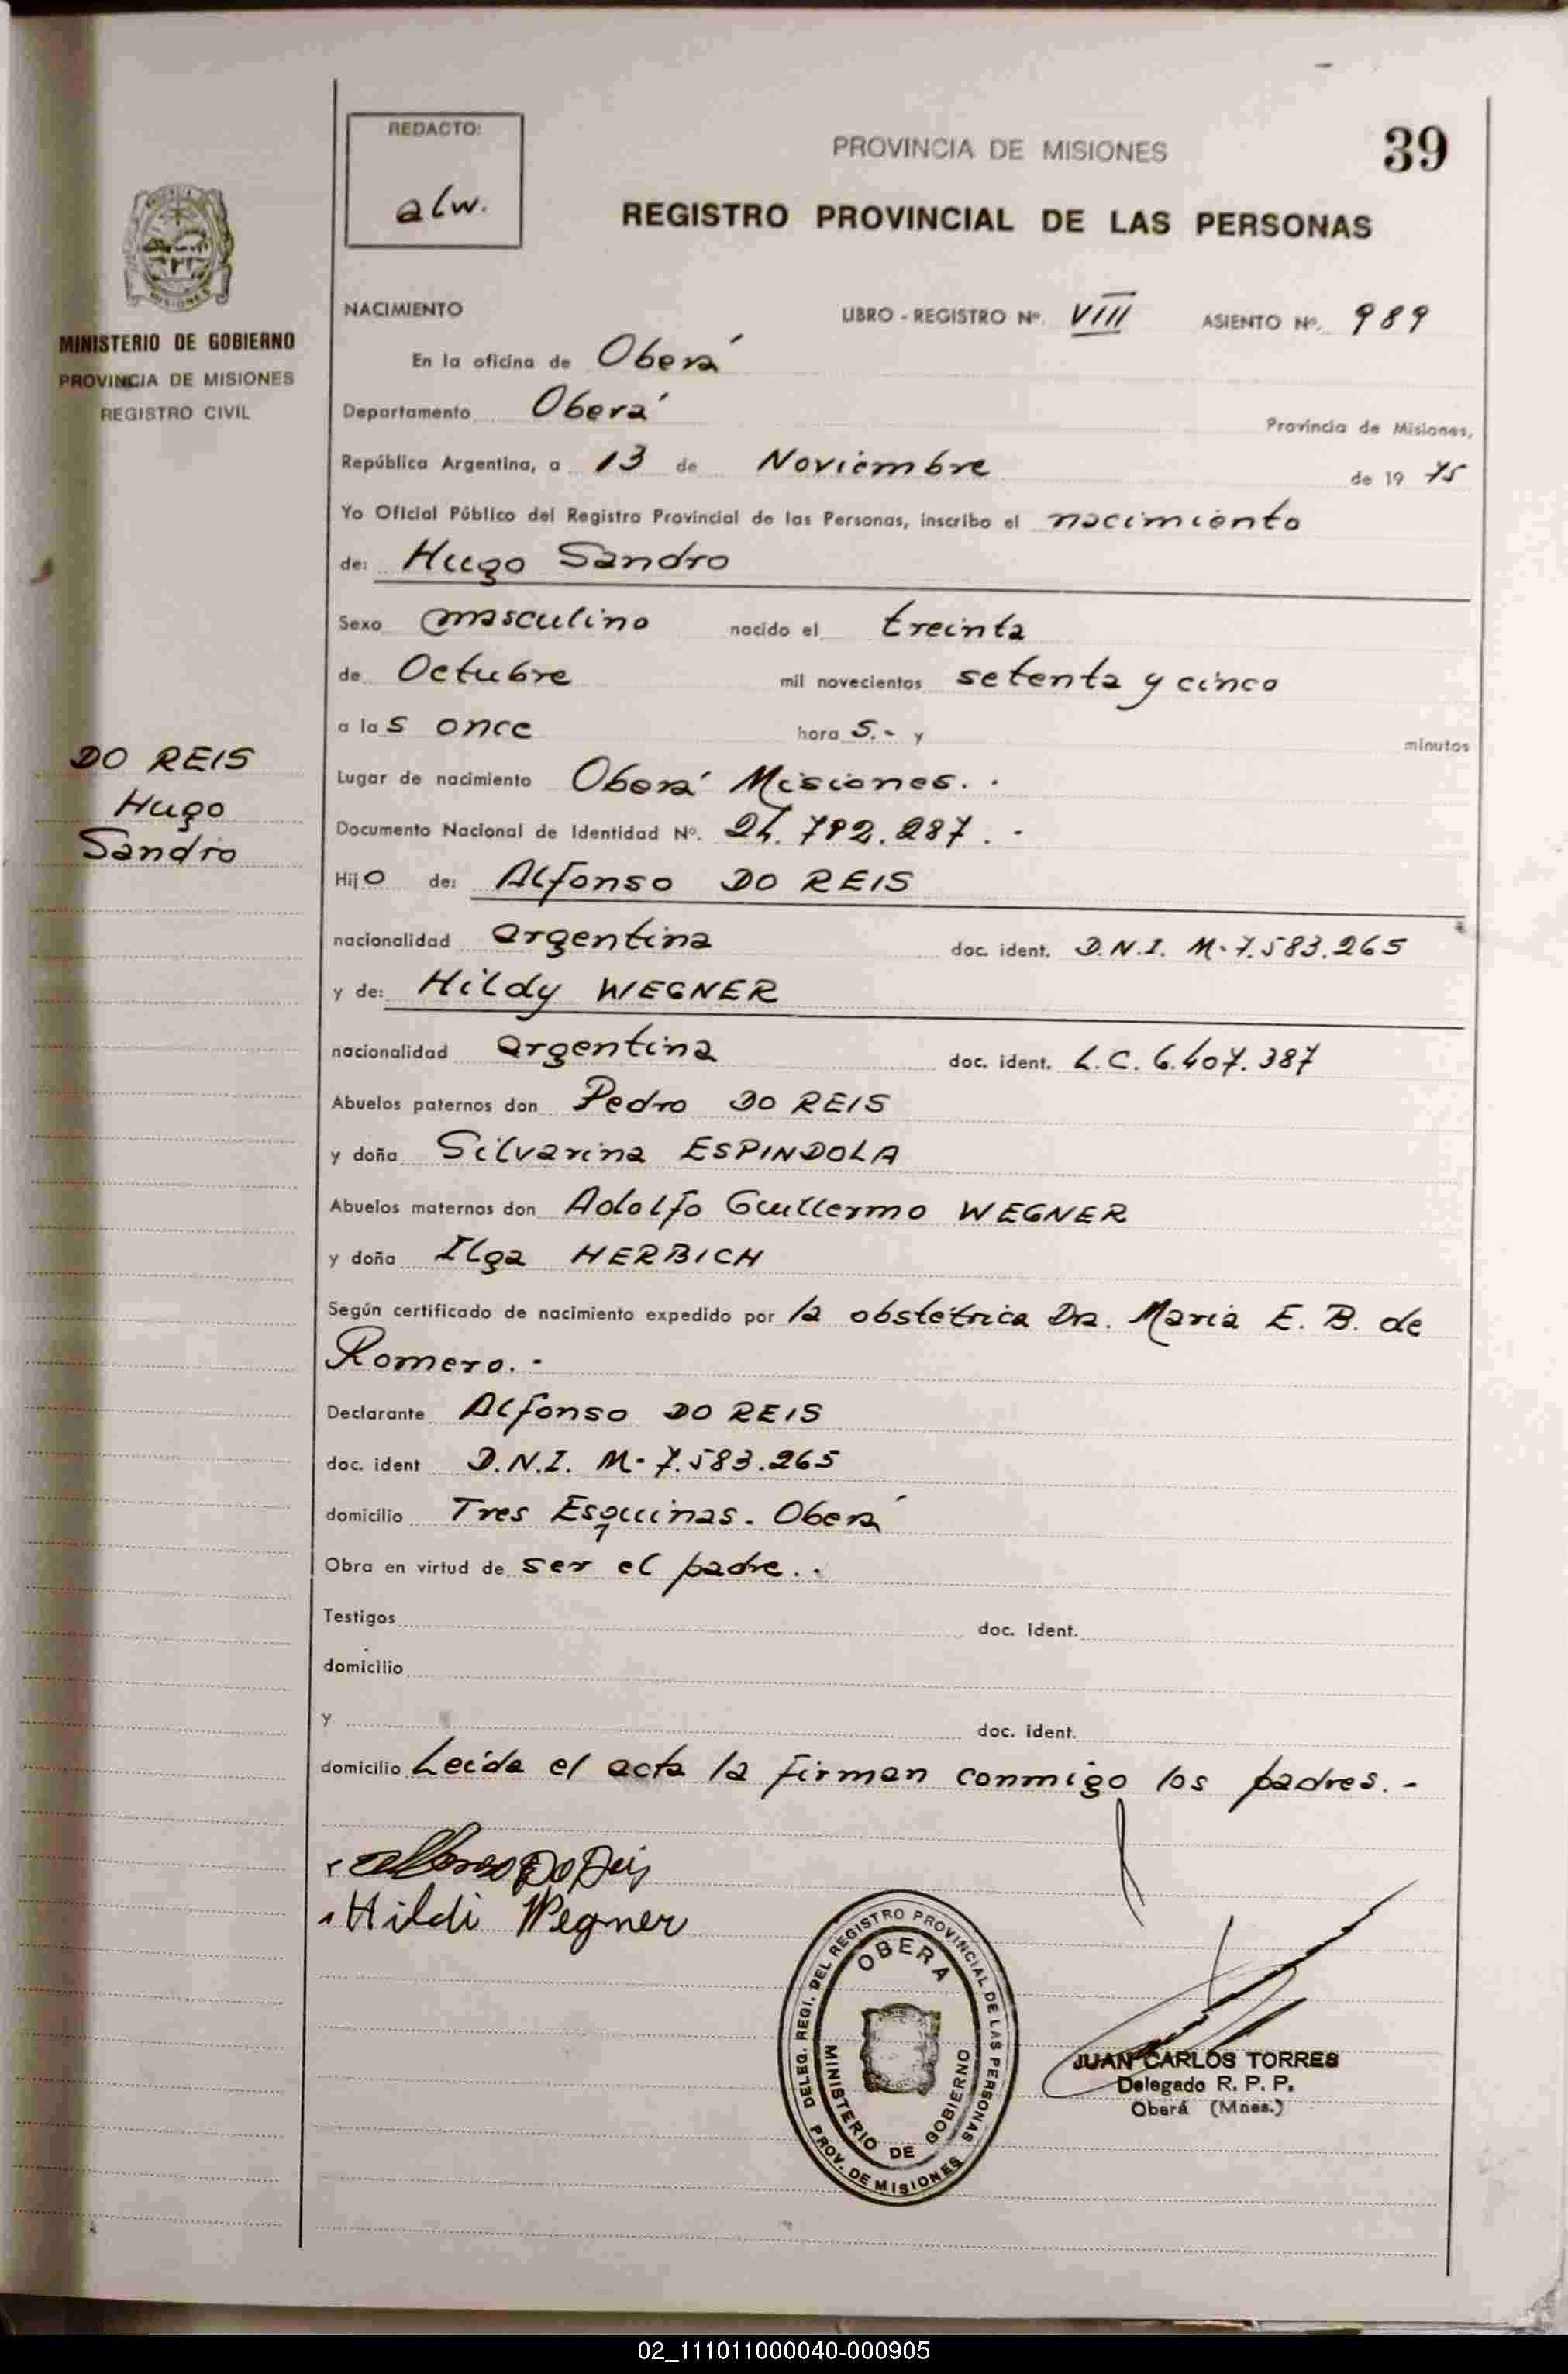 REDACTO:
alw.
PROVINCIA DE MISIONES
39
REGISTRO PROVINCIAL DE LAS PERSONAS
MISIONES
MINISTERIO DE GOBIERNO
PROVINCIA DE MISIONES
REGISTRO CIVIL
NACIMIENTO LIBRO - REGISTRO Nº. VIII ASIENTO Nº. 989
En la oficina de Oberá
Departamento Oberá Provincia de Misiones,
República Argentina, a 13 de Noviembre de 19 75
Yo Oficial Público del Registro Provincial de las Personas, inscribo el nacimiento
de: Hugo Sandro
Sexo masculino nacido el treinta
de Octubre mil novecientos setenta y cinco
a las once horas.- y minutos
DO REIS
Hugo
Sandro
Lugar de nacimiento Oberá Misiones. -
Documento Nacional de Identidad Nº. 24.792.287. -
Hijo de: Alfonso DO REIS
nacionalidad argentina doc. ident. D.N.I. M-7.583.265
y de: Hildy WEGNER
nacionalidad argentina doc. ident. L.C. 6.407.387
Abuelos paternos don Pedro DO REIS
y doña Silvarina ESPINDOLA
Abuelos maternos don Adolfo Guillermo WEGNER
y doña Ilga HERBICH
Según certificado de nacimiento expedido por la obstétrica Dra. Maria E. B. de
Romero. -
Declarante Alfonso DO REIS
doc. ident D.N.I. M-7.583.265
domicilio Tres Esquinas. Oberá
Obra en virtud de ser el padre. .
Testigos doc. ident.
domicilio
y doc. ident.
domicilio Leída el acta la firman conmigo los padres. -
Alfonso Do Reis
Hildi Wegner
DELEG. REGI. DEL REGISTRO PROVINCIAL DE LAS PERSONAS
OBERA
MINISTERIO DE GOBIERNO
PROV. DE MISIONES
JUAN CARLOS TORRES
Delegado R. P. P.
Oberá (Mnes.)
02_111011000040-000905